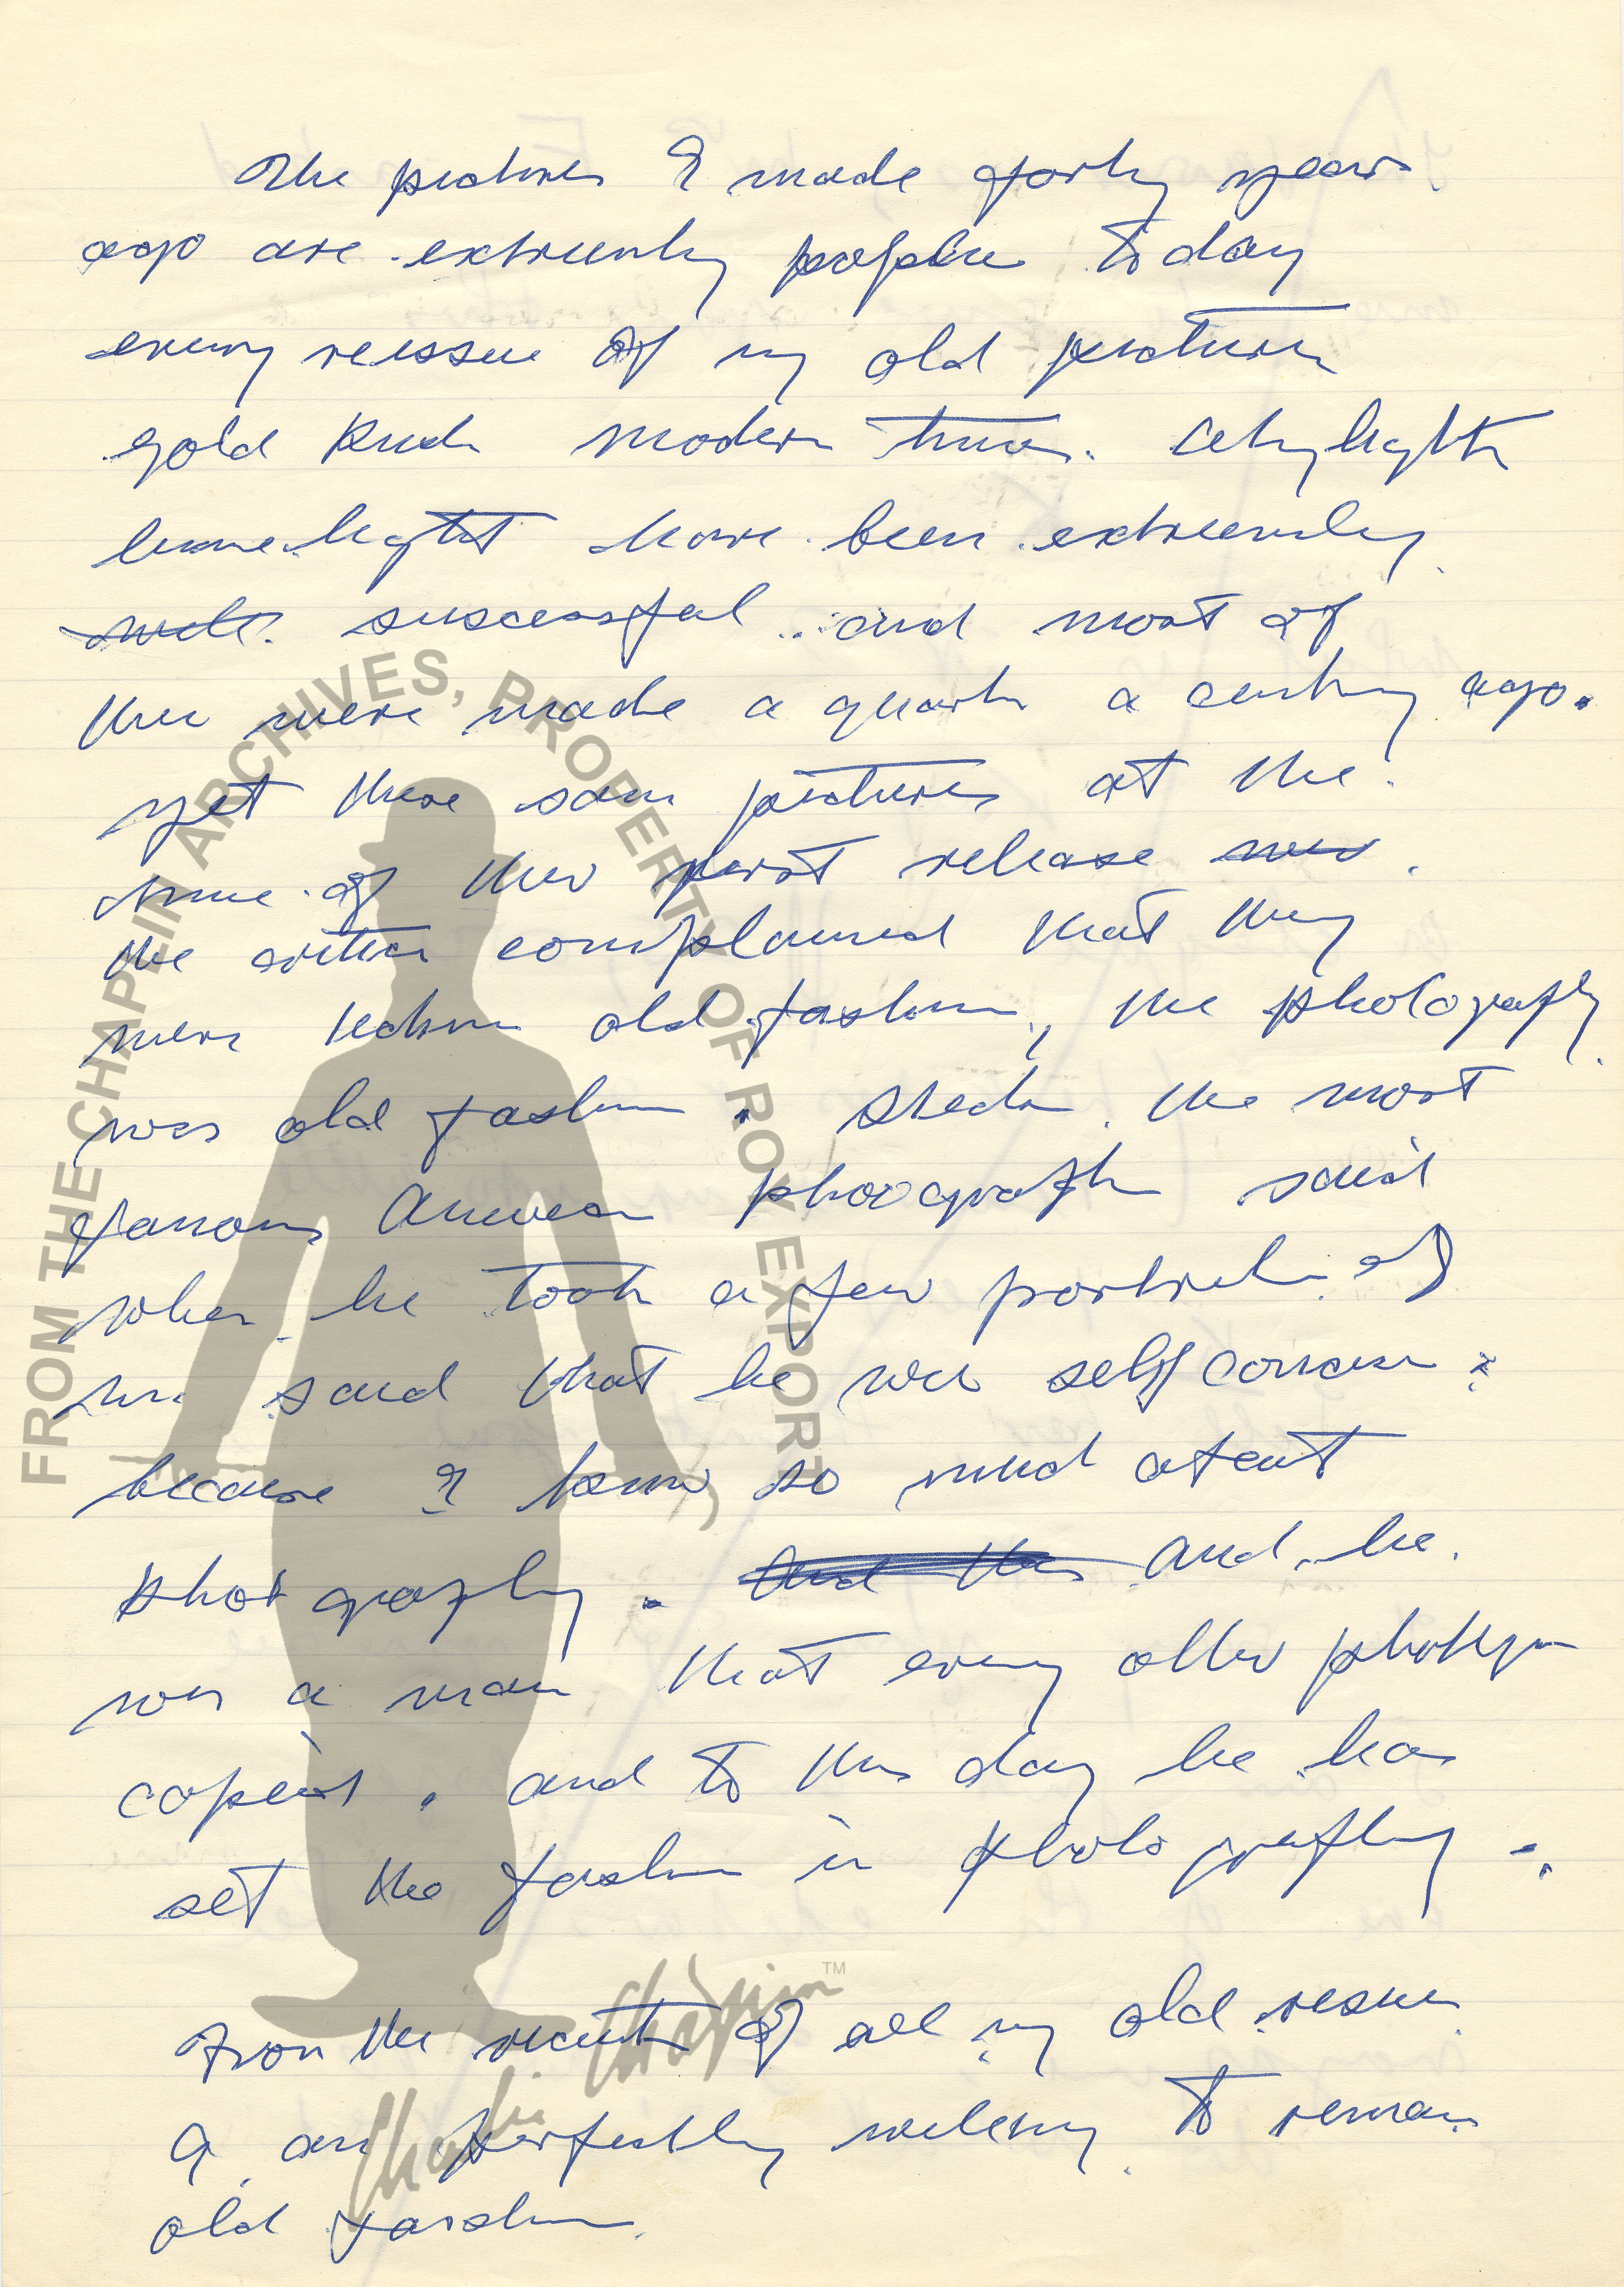 The pictures I made forty years
ago are extremely popular today
every reissue of my old pictures
gold Rush modern times. Citylights
limelight have been extremely
well. successful and most of
them were made a quarter a century ago.
yet these same pictures at the
time of their first release were
the critics complained that they
were old fashion, the photography
was old fashion. the most
famous American photograph said
when he took a few portraits of
me said that he was self conscious
because I knew so much about
photography. And this and he
was a man that every other
copied, and to this day he has
set the fashion in photography.
From the of all my old reissues
I am perfectly willing to remain
old fashion.
FROM THE CHAPLIN ARCHIVES, PROPERTY OF ROY EXPORT
Charlie Chaplin™